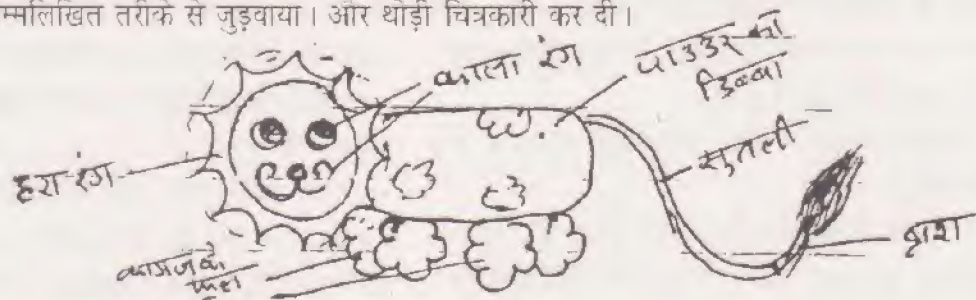 म्मलिखित तरीके से जुड़वाया। और थोड़ी चित्रकारी कर दी।
काला रंग
पाउडर का
डिब्बा
हरा रंग
सुतली
ब्राश
कागज के